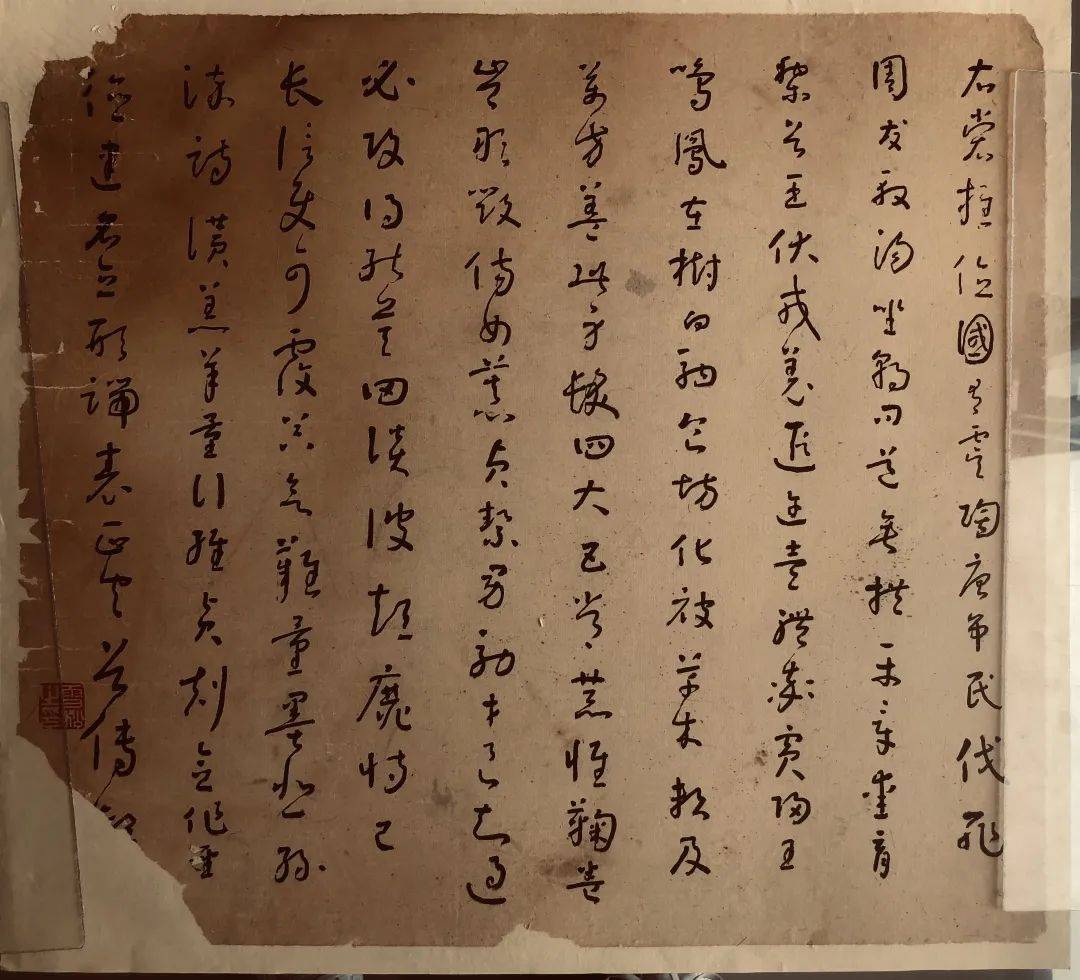 衣裳推位國有虞陶唐弔民伐罪
周發殷湯坐朝問道垂拱平章愛育
黎首臣伏戎羌遐邇壹體率賓歸王
鳴鳳在樹白駒食場化被草木賴及
萬方蓋此身髮四大五常恭惟鞠養
豈敢毀傷女慕貞潔男效才良知過
必改得能莫忘罔談彼短靡恃己
長信使可覆器欲難量墨悲絲
染詩讚羔羊景行維賢剋念作聖
德建名立形端表正空谷傳聲